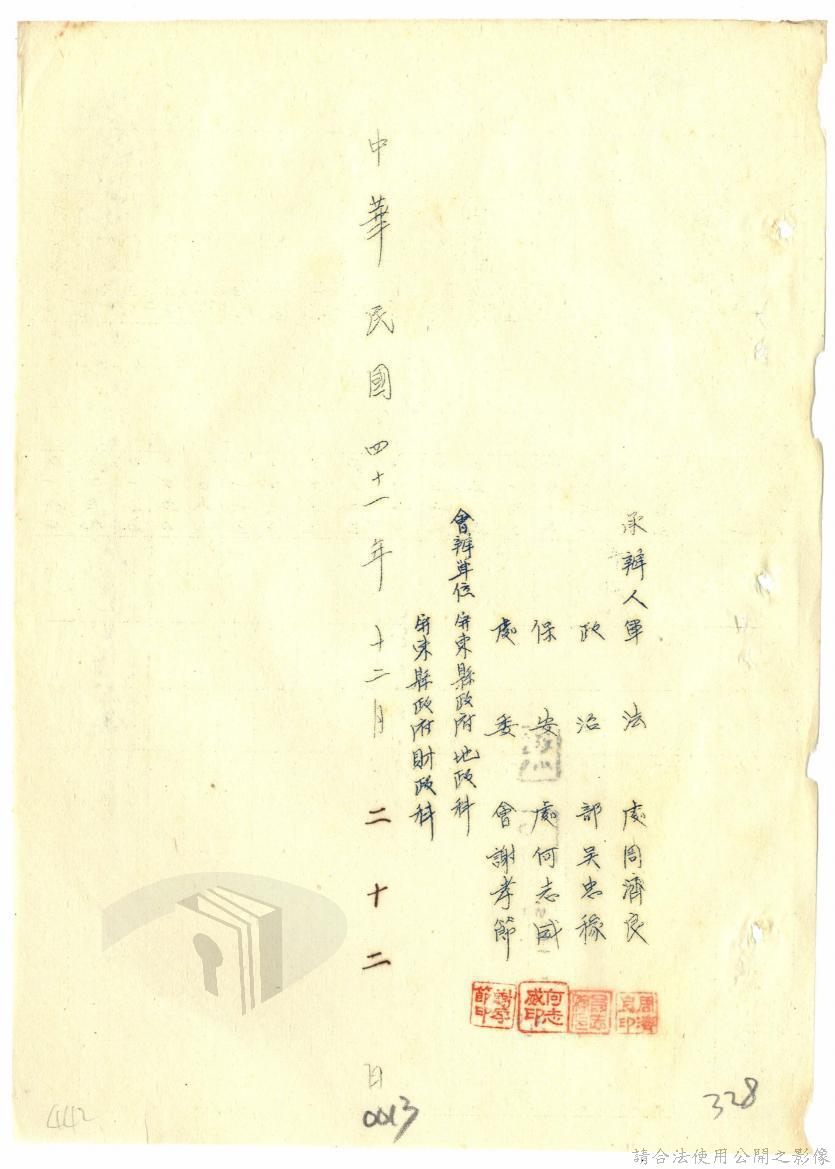 承辦人軍法處周濟良
政治部吳忠稼
保安處何志威
處委會謝孝節
會辦單位屏東縣政府地政科
屏東縣政府財政科
中華民國四十一年十二月二十二日
周濟良印
何志威印
謝孝節印
442
0013
328
請合法使用公開之影像